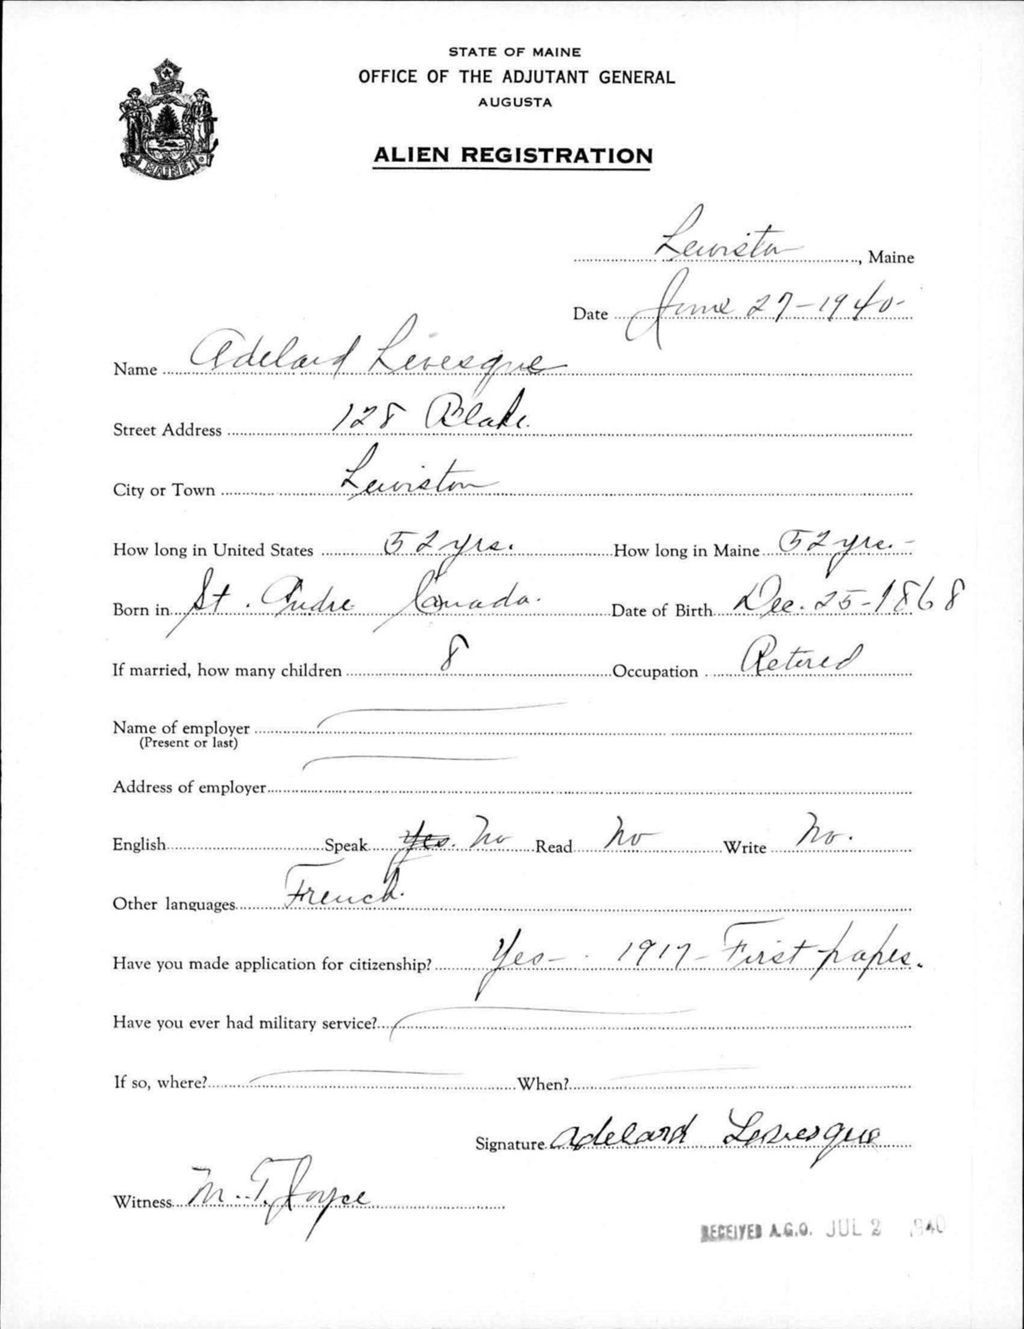 STATE OF MAINE
OFFICE OF THE ADJUTANT GENERAL
AUGUSTA
ALIEN REGISTRATION
MAINE
Lewiston, Maine
Date June 27-1940-
Name Adelard Levesque
Street Address 128 Blake
City or Town Lewiston
How long in United States 52 yrs. How long in Maine 52 yrs. -
Born in St. Andre Canada. Date of Birth Dec. 25-1868
If married, how many children 8 Occupation Retired
Name of employer
(Present or last)
Address of employer
English Speak Yes. No Read No Write No.
Other languages French.
Have you made application for citizenship? Yes - 1917 - First papers.
Have you ever had military service?
If so, where? When?
Signature Adelard Levesque
Witness M. T. Joyce
RECEIVED A.G.O. JUL 2 1940